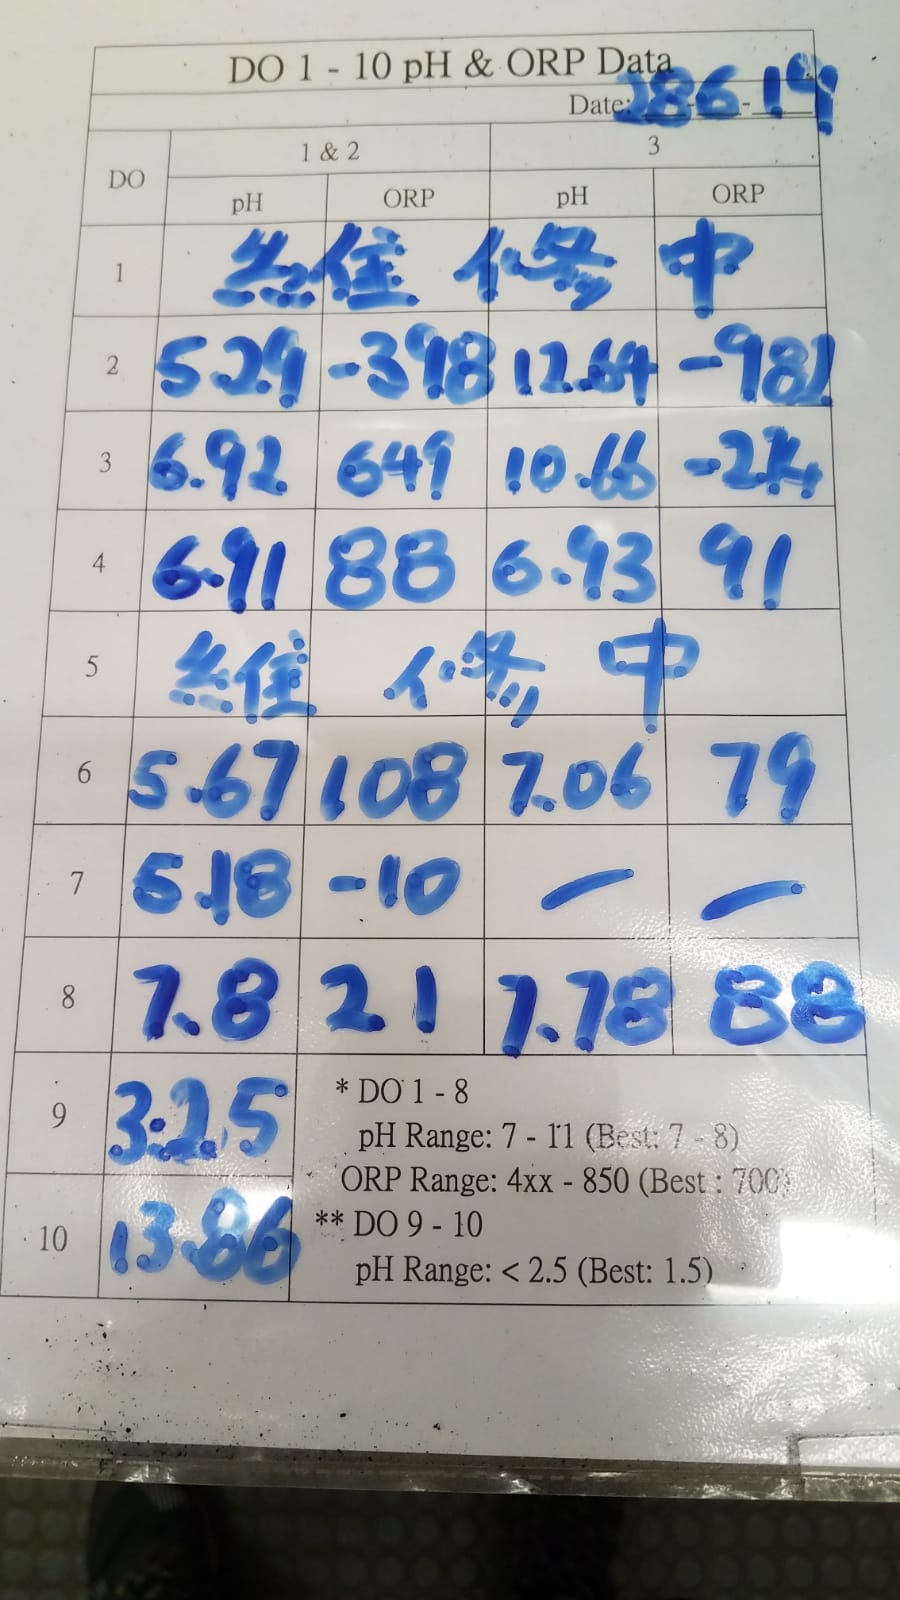 DO 1 - 10 pH & ORP Data
Date: 28-6-19
DO 1 & 2 3
pH ORP pH ORP
1 維修中
2 5.29 -398 12.64 -982
3 6.92 649 10.66
4 6.91 88 6.93 91
5 維修中
6 5.67 108 7.06 79
7 5.18 -10 — —
8 7.8 21 7.78 88
9 3.25
10 13.86
* DO 1 - 8
pH Range: 7 - 11 (Best: 7 - 8)
ORP Range: 4xx - 850 (Best : 700)
** DO 9 - 10
pH Range: < 2.5 (Best: 1.5)